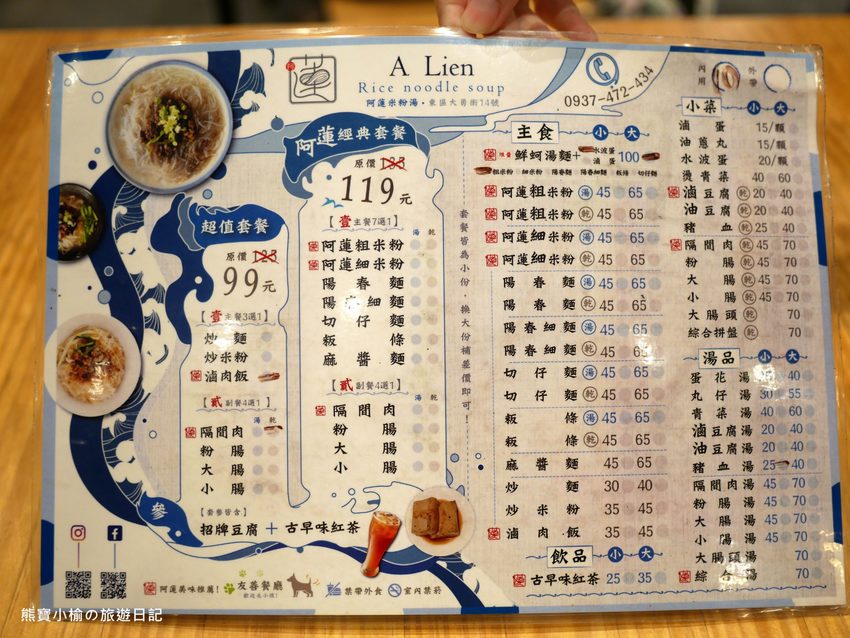 A Lien
Rice noodle soup
阿蓮米粉湯·東區大勇街14號
0937-472-434
內用
外帶
超值套餐
原價
99元
【壹主餐3選1】
炒麵
炒米粉
滷肉飯
【貳副餐4選1】
湯 乾
隔間肉
粉腸
大腸
小腸
參
【套餐皆含】
招牌豆腐+古早味紅茶
阿蓮經典套餐
原價
119元
【壹主餐7選1】
湯 乾
阿蓮粗米粉
阿蓮細米粉
陽春麵
陽春細麵
切仔麵
粄條
麻醬麵
【貳副餐4選1】
湯 乾
隔間肉
粉腸
大腸
小腸
套餐皆為小份，換大份補差價即可！
主食 小 大
限量 鮮蚵湯麵+ 水波蛋 滷蛋 100
粗米粉 細米粉 陽春麵 陽春細麵 粄條 切仔麵
阿蓮粗米粉 湯 45 65
阿蓮粗米粉 乾 45 65
阿蓮細米粉 湯 45 65
阿蓮細米粉 乾 45 65
陽春麵 湯 45 65
陽春麵 乾 45 65
陽春細麵 湯 45 65
陽春細麵 乾 45 65
切仔麵 湯 45 65
切仔麵 乾 45 65
粄條 湯 45 65
粄條 乾 45 65
麻醬麵 45 65
炒麵 30 40
炒米粉 35 45
滷肉飯 35 45
飲品 小 大
古早味紅茶 25 35
小菜 小 大
滷蛋 15/顆
油蔥丸 15/顆
水波蛋 20/顆
燙青菜 40 60
滷豆腐 乾 20 40
油豆腐 乾 20 40
豬血 乾 25 40
隔間肉 乾 45 70
粉腸 乾 45 70
大腸 乾 45 70
小腸 乾 45 70
大腸頭 乾 70
綜合拼盤 乾 70
湯品 小 大
蛋花湯 40
丸仔湯 30 55
青菜湯 40 60
滷豆腐湯 20 40
油豆腐湯 20 40
豬血湯 25 40
隔間肉湯 45 70
粉腸湯 45 70
大腸湯 45 70
小腸湯 45 70
大腸頭湯 70
綜合湯 70
阿蓮美味推薦！
友善餐廳
歡迎毛小孩！
禁帶外食
室內禁菸
熊寶小榆の旅遊日記